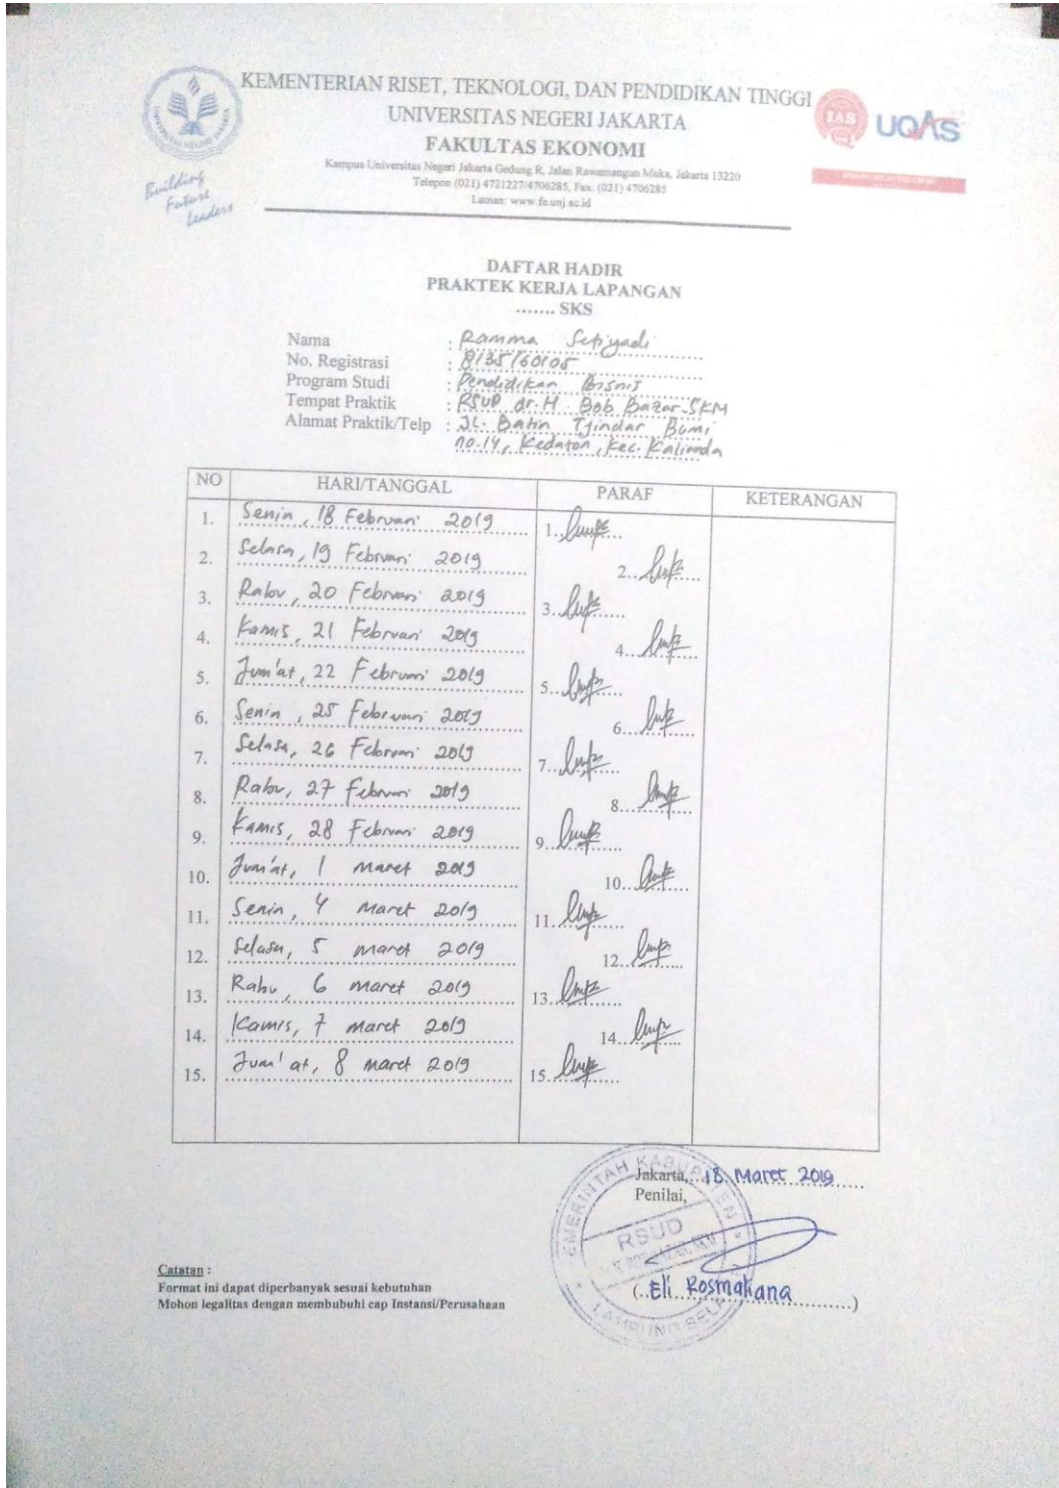 KEMENTERIAN RISET, TEKNOLOGI, DAN PENDIDIKAN TINGGI
UNIVERSITAS NEGERI JAKARTA
FAKULTAS EKONOMI
Kampus Universitas Negeri Jakarta Gedung R, Jalan Rawamangun Muka, Jakarta 13220
Telepon (021) 4721227/4706285, Fax: (021) 4706285
Laman: www.fe.unj.ac.id
Building
Future
Leaders
IAS
UQAS
DAFTAR HADIR
PRAKTEK KERJA LAPANGAN
....... SKS
Nama : Ramma Setiyadi
No. Registrasi : 8135160105
Program Studi : Pendidikan Bisnis
Tempat Praktik : RSUP dr. H. Bob Bazar. SKM
Alamat Praktik/Telp : JL. Batin Tjindar Bumi
no.14, Kedaton, Kec. Kalianda
NO HARI/TANGGAL PARAF KETERANGAN
1. Senin, 18 Februari 2019 1.
2. Selasa, 19 Februari 2019 2.
3. Rabu, 20 Februari 2019 3.
4. Kamis, 21 Februari 2019 4.
5. Jum'at, 22 Februari 2019 5.
6. Senin, 25 Februari 2019 6.
7. Selasa, 26 Februari 2019 7.
8. Rabu, 27 Februari 2019 8.
9. Kamis, 28 Februari 2019 9.
10. Jum'at, 1 maret 2019 10.
11. Senin, 4 maret 2019 11.
12. Selasa, 5 maret 2019 12.
13. Rabu, 6 maret 2019 13.
14. Kamis, 7 maret 2019 14.
15. Jum'at, 8 maret 2019 15.
Jakarta, 18. Maret 2019
Penilai,
RSUD
(..Eli Rosmaliana..)
Catatan :
Format ini dapat diperbanyak sesuai kebutuhan
Mohon legalitas dengan membubuhi cap Instansi/Perusahaan